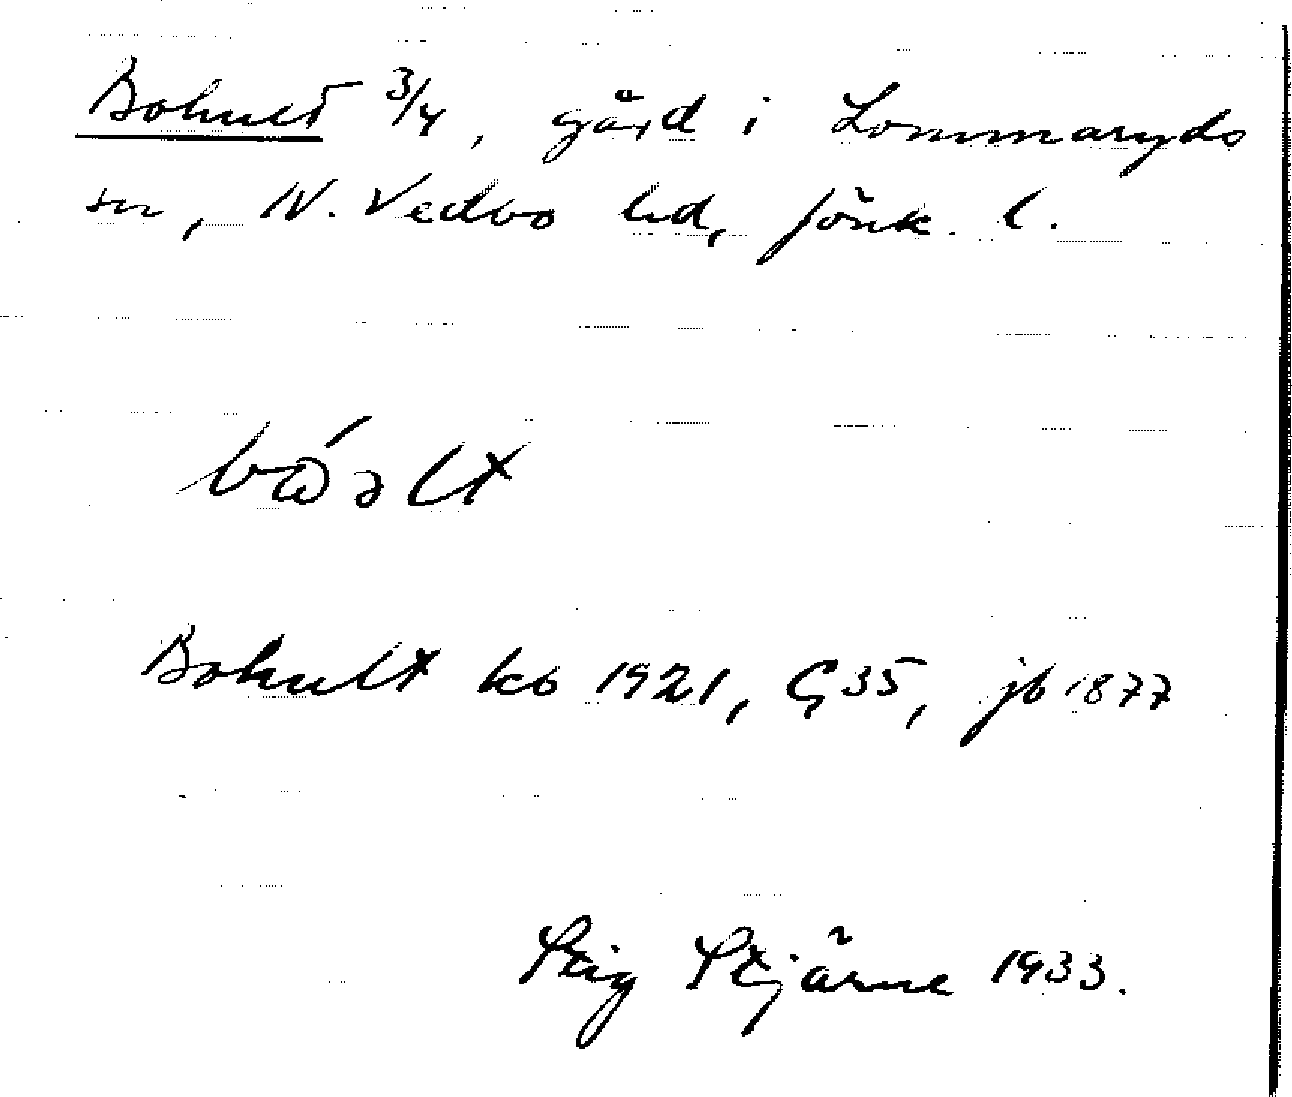 Bohult 3/4, gård i Lommaryds
sn, N. Vedbo hd, Jönk. l.
Bohult kb 1921, G35, jb 1877
Stig Stjärne 1933.